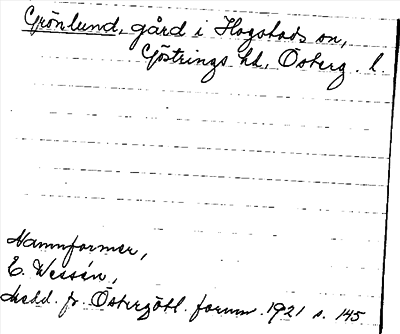 Grönlund, gård i Hogstads sn,
Göstrings hd, Österg. l
Namnformer,
E. Wessén,
Medd. fr. Östergötl. fornm. 1921 s. 145